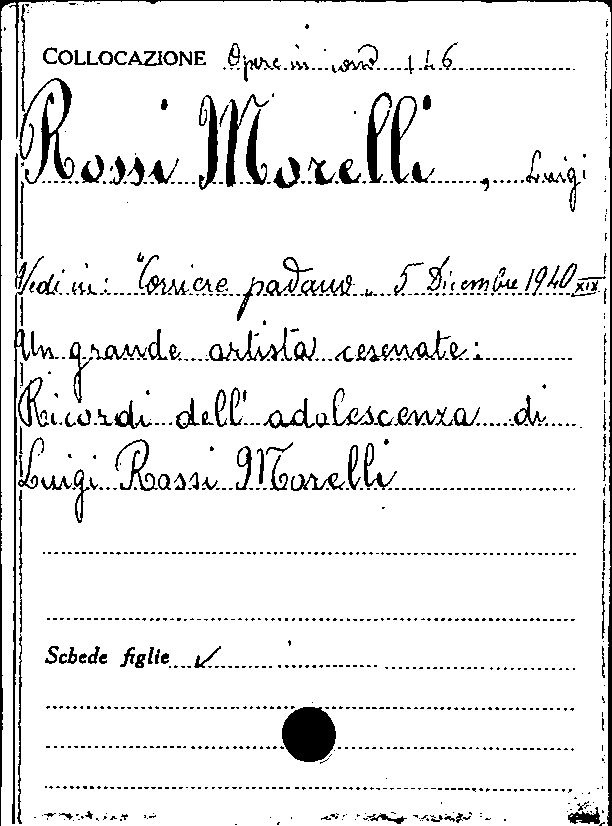 COLLOCAZIONE Opere in cons 146
Rossi Morelli, Luigi
Vedi in: "Corriere padano" 5 Dicembre 1940 XIX
Un grande artista cesenate:
Ricordi dell'adolescenza di
Luigi Rossi Morelli
Schede figlie ✓